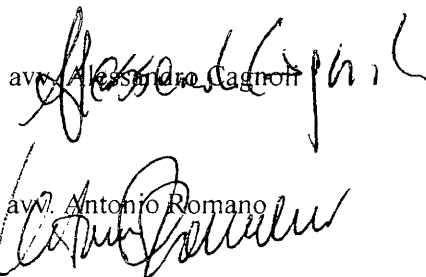 avv. Alessandro Cagnoli
avv. Antonio Romano